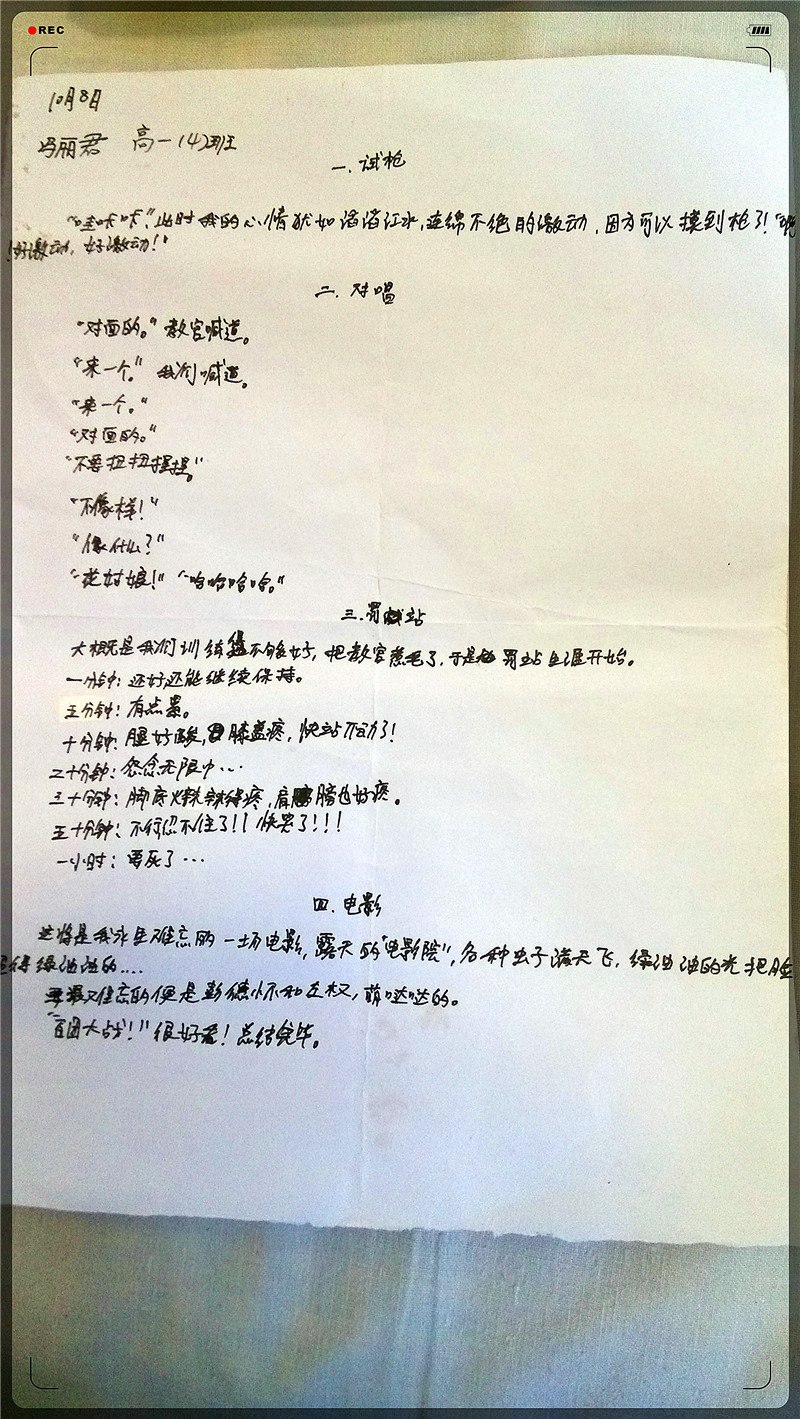 REC
10月8日
冯丽君 高一(4)班
一.试枪
"哇咔咔",此时我的心情犹如滔滔江水,连绵不绝的激动,因为可以摸到枪了!"呃
!好激动,好激动!"
二.对唱
"对面的。"教官喊道。
"来一个。"我们喊道。
"来一个。"
"对面的。"
"不要扭扭捏捏。"
"不像样!"
"像什么?"
"花姑娘!" "哈哈哈哈。"
三.罚站
大概是我们训练不够好,把教官惹毛了,于是罚站生涯开始。
一分钟:还好还能继续保持。
五分钟:有点累。
十分钟:腿好酸,膝盖疼,快站不动了!
二十分钟:怨念无限中...
三十分钟:脚底火辣辣得疼,肩膀也好疼。
五十分钟:不行忍不住了!!快哭了!!!
一小时:要死了...
四.电影
这将是我永生难忘的一场电影,露天的"电影院",各种虫子满天飞,绿油油的光把脸
得绿油油的....
最难忘的便是彭德怀和左权,萌哒哒的。
"百团大战!"很好看!总结完毕。